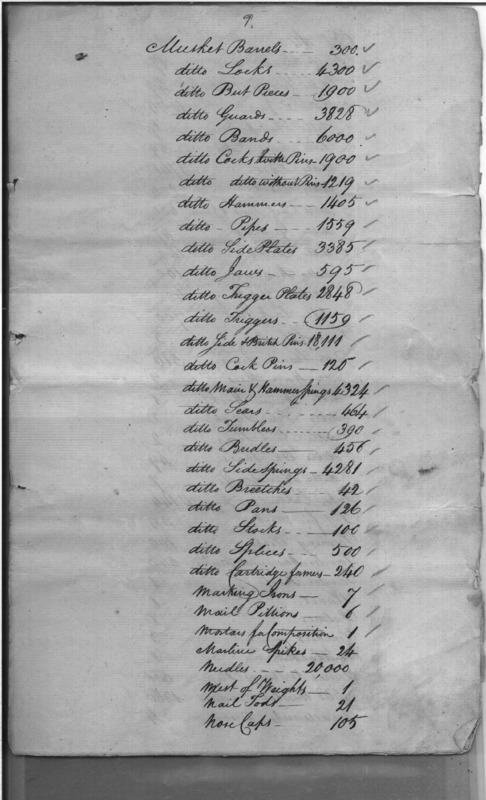 9.
Musket Barrels 300
ditto Locks 4300
ditto But Pieces 1900
ditto Guards 3828
ditto Bands 6000
ditto Cocks with Pins 1900
ditto ditto without Pins 1219
ditto Hammers 1405
ditto Pipes 1559
ditto Side Plates 3385
ditto Jaws 595
ditto Trigger Plates 2848
ditto Triggers 1159
ditto Side & Britch Pins 18,111
ditto Cock Pins 125
ditto Main & Hammer Springs 4324
ditto Sears 464
ditto Tumblers 390
ditto Bridles 456
ditto Side Springs 4281
ditto Breetches 42
ditto Pans 126
ditto Stocks 100
ditto Splices 500
ditto Cartridge formers 240
Marking Irons 7
Mail Pillions 6
Mortars for Composition 1
Marline Spikes 24
Needles 20,000
Nest of Weights 1
Nail Rods 21
Nose Caps 105